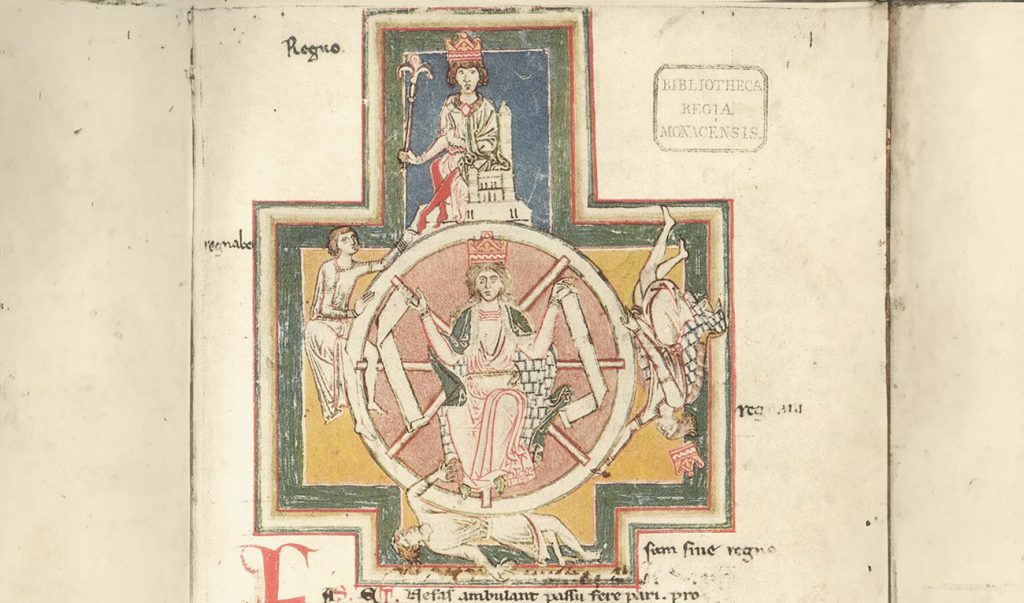 Regno.
BIBLIOTHECA
REGIA
MONACENSIS.
regnabo
sum sine regno
Nefas ambulant passu fere pari. pro